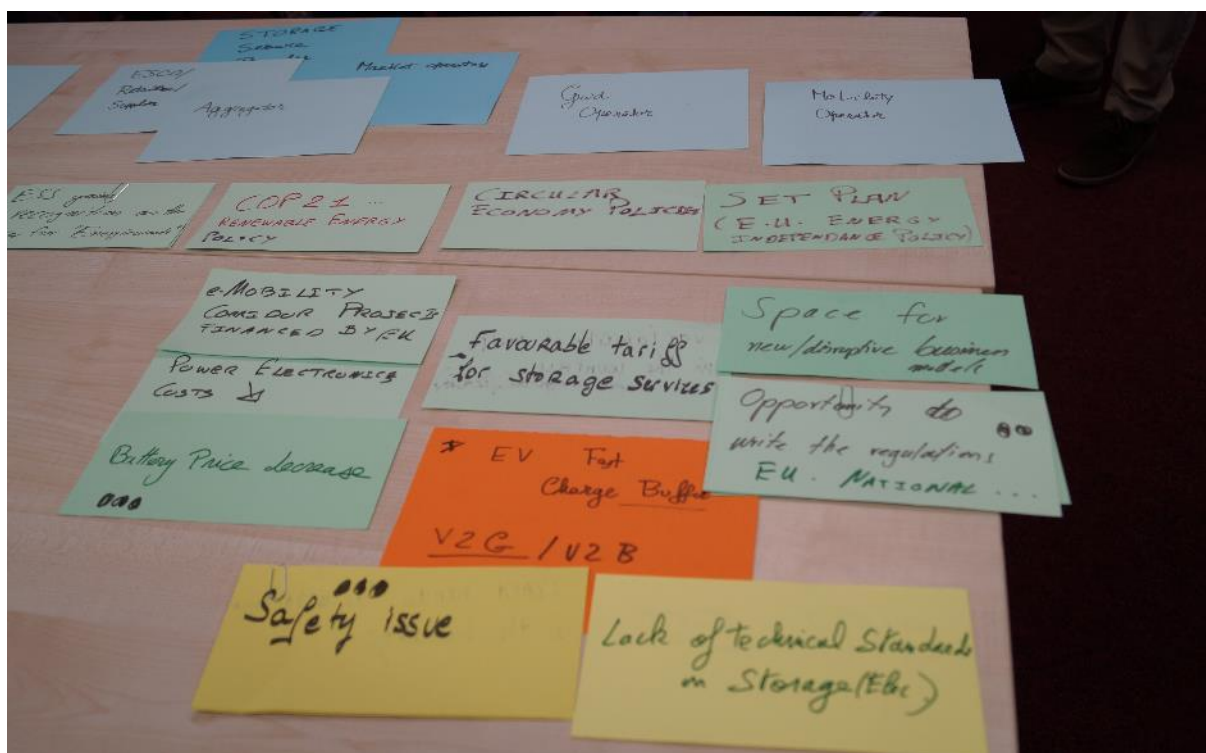 STORAGE
SERVICE
Market operators
ESCO/
Retailer/
Supplier
Aggregator
Grid
Operator
Mobility
Operator
ESS
recognition as the
for "Environment"
COP21 ...
RENEWABLE ENERGY
POLICY
CIRCULAR
ECONOMY POLICIES
SET PLAN
(E.U. ENERGY
INDEPENDANCE POLICY)
e-MOBILITY
PROJECTS
FINANCED BY EU
POWER ELECTRONICS
COSTS ↘
Battery Price decrease
Favourable tariff
for storage services
Space for
new/disruptive business
models
Opportunity to
write the regulations
EU. NATIONAL ...
* EV Fast
Charge Buffer
V2G / V2B
Safety issue
Lack of technical Standards
in Storage (Elec)